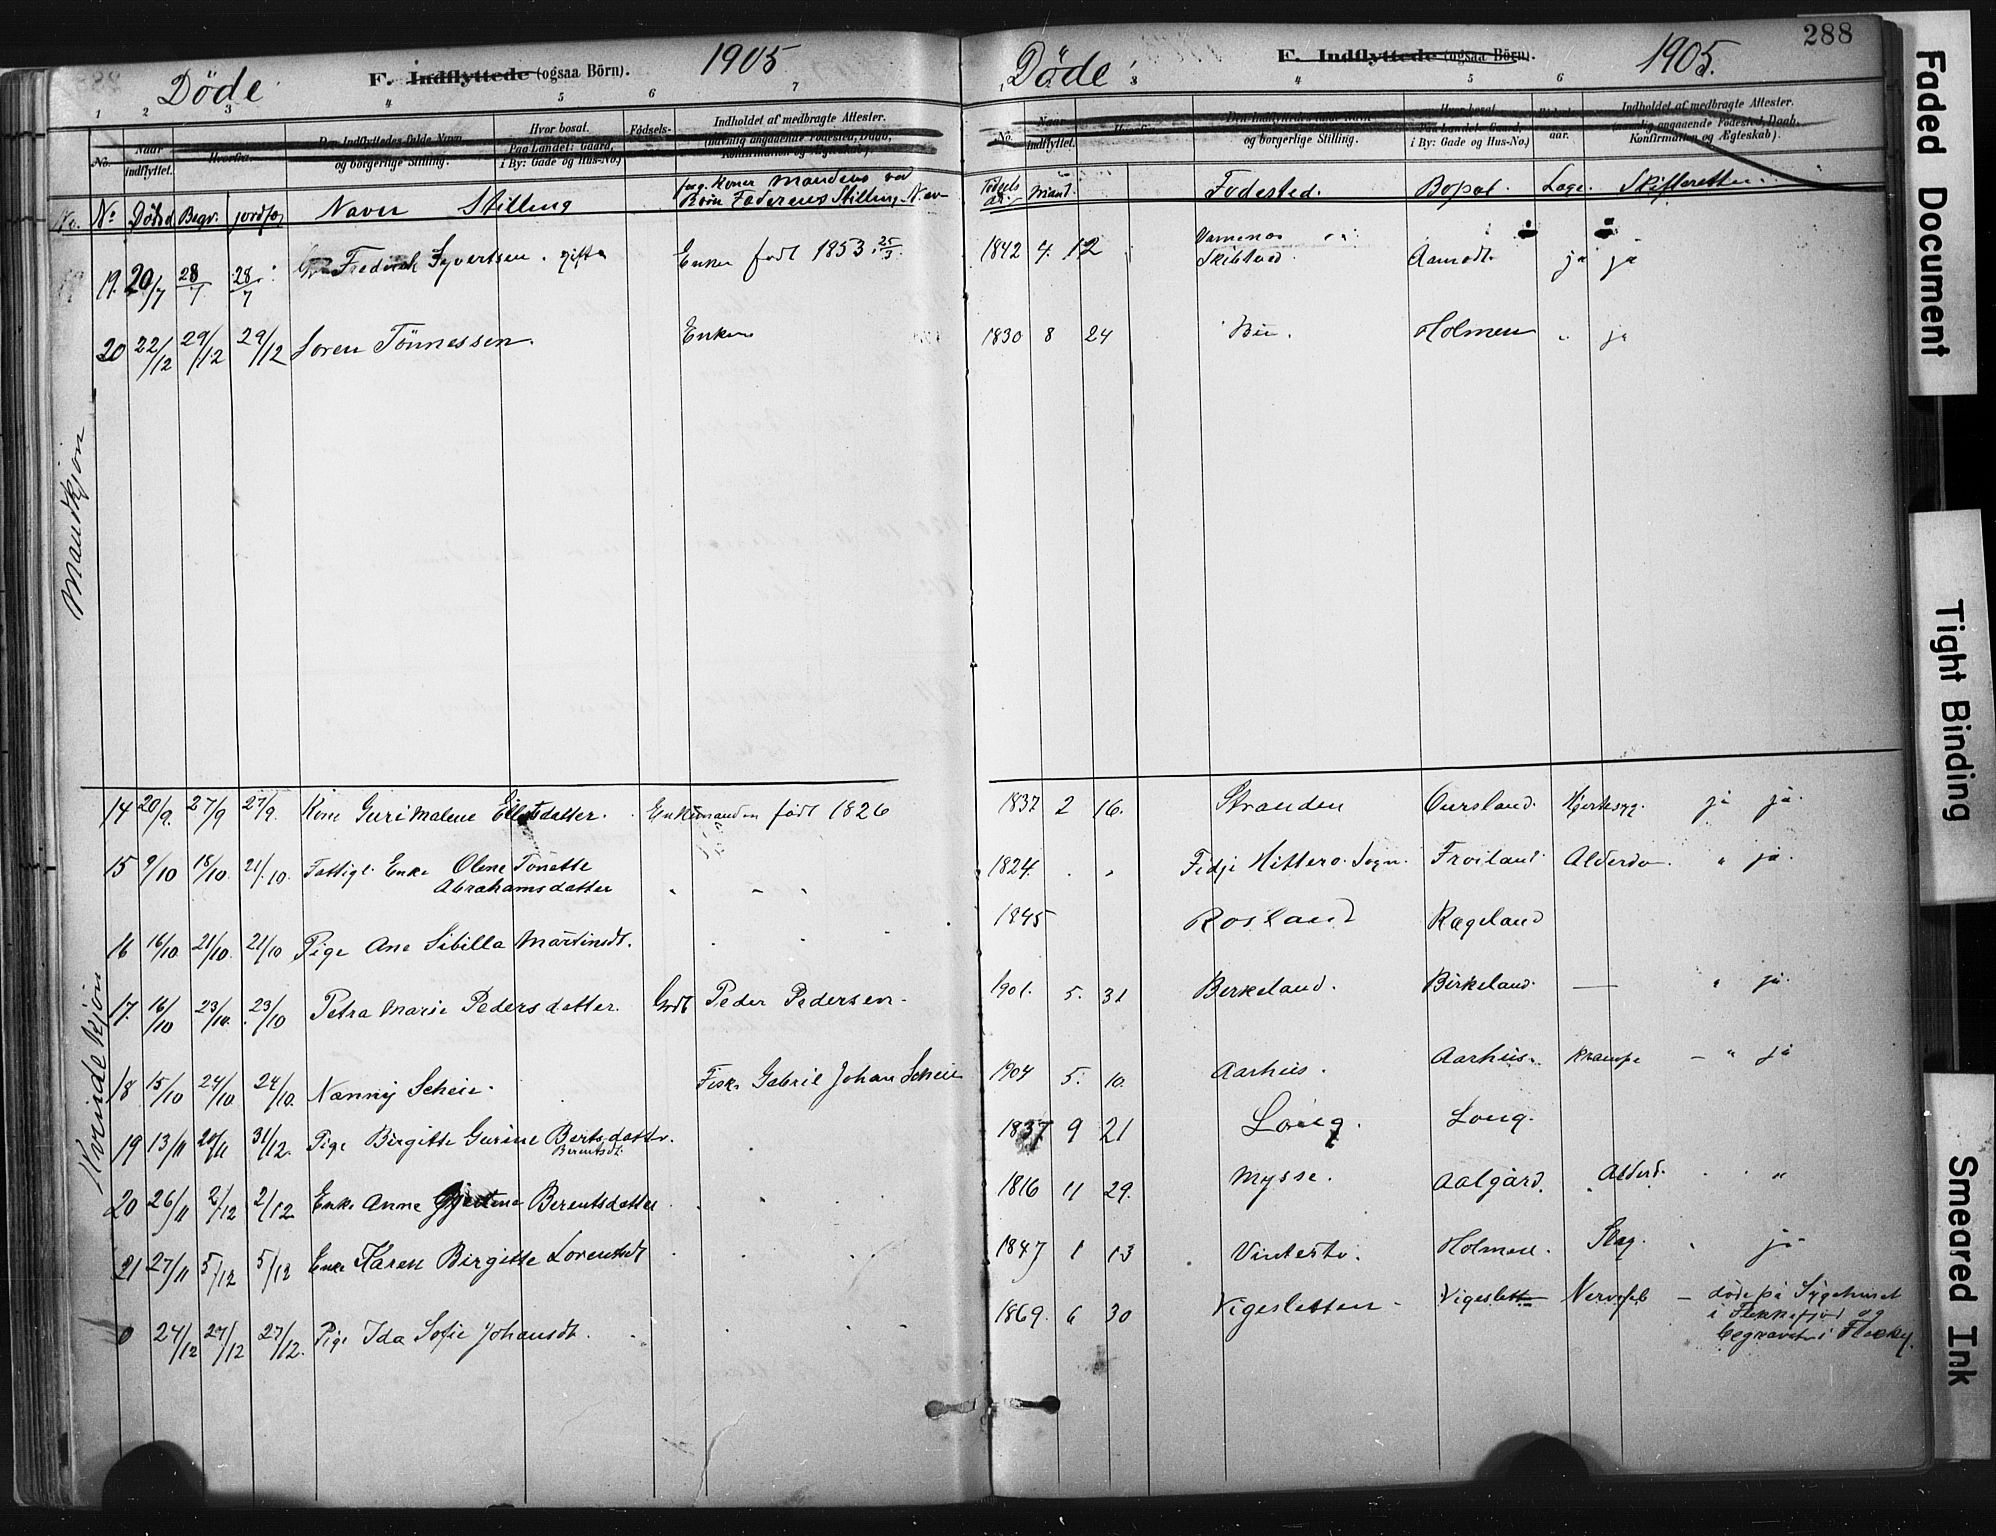 Döde
F. Indflyttede (ogsaa Börn).
1905
1 2 3 4 5 6 7
No.
Naar indflyttet.
Hvorfra.
Den Indflyttedes fulde Navn og borgerlige Stilling.
Hvor bosat. Paa Landet: Gaard, i By: Gade og Hus-No.)
Födsels-
Indholdet af medbragte Attester. (navnlig angaaende Fødested, Daab, Konfirmation og Ægteskab).
No. Döds d. Begr. jordfæ Navn Stilling
Koner Mandens ved
Börn Faderens Stilling Navn
19. 20/7 28/7 28/7 Fredrik Syvertsen. gift Enken født 1853 25/3
20 22/12 29/12 29/12 Soren Tönnessen. Enken
Mandkjön
14 20/9. 27/9 27/9. Kone Guri Malene Ellertsdatter. Enkemanden født 1826
15 9/10 18/10. 21/10. Fattigl. Enke Olene Tonette
Abrahamsdatter
16 16/10 21/10. 21/10 Pige Ane Sibilla Martinsdt.
17. 16/10 23/10. 23/10 Petra Marie Pedersdatter. Grdb Peder Pedersen.
18 15/10 24/10. 24/10. Nanny Scheie. Fisk. Gabriel Johan Scheie
19 13/11 20/11 31/12. Pige Birgitte Gurine Bertsdatter.
Berentsdt.
20 26/11 2/12 2/12 Enke Anne Gjertine Berentsdatter
21 27/11 5/12 5/12 Enke Karen Birgitte Lorentsdt
0 24/12 27/12 27/12. Pige Ida Sofie Johansdt.
Kvindekjön
Döde
F. Indflyttede (ogsaa Börn).
1905.
288
3 4 5 6
No.
Naar indflyttet.
og borgerlige Stilling.
Hvor bosat. Paa Landet: Gaard, i By: Gade og Hus-No.)
aar.
Indholdet af medbragte Attester. (navnlig angaaende Fødested, Daab, Konfirmation og Ægteskab).
Födsels aar. Maand. Fodested. Bopæl. Læge. Skifteretten
1842 4. 12 Skibstad Aamodt ja ja
1830 8 24 Holmen " ja
1837 2 16. Stranden Oursland. Hjertesyg. ja ja.
1824. Fidje Hittero Sogn. Froiland. Alderdo. " ja.
1845 Rosland Rægeland
1901. 5. 31 Berkeland. Birkeland. — " ja.
1904 5. 10. Aarhus. Aarhus. Krampe — " ja
1837 9 21 Loug. Loug.
1816 11 29. Mysse. Aalgård. Alderd. "
1847 1 13 Vintersto. Holmen. Slag. ja
1869. 6 30 Vigesletten. Vigeslett Nervefeb — döde på Sygehuset
i Flekkefjord og
begravet i Flekkef.
Faded Document
Tight Binding
Smeared Ink